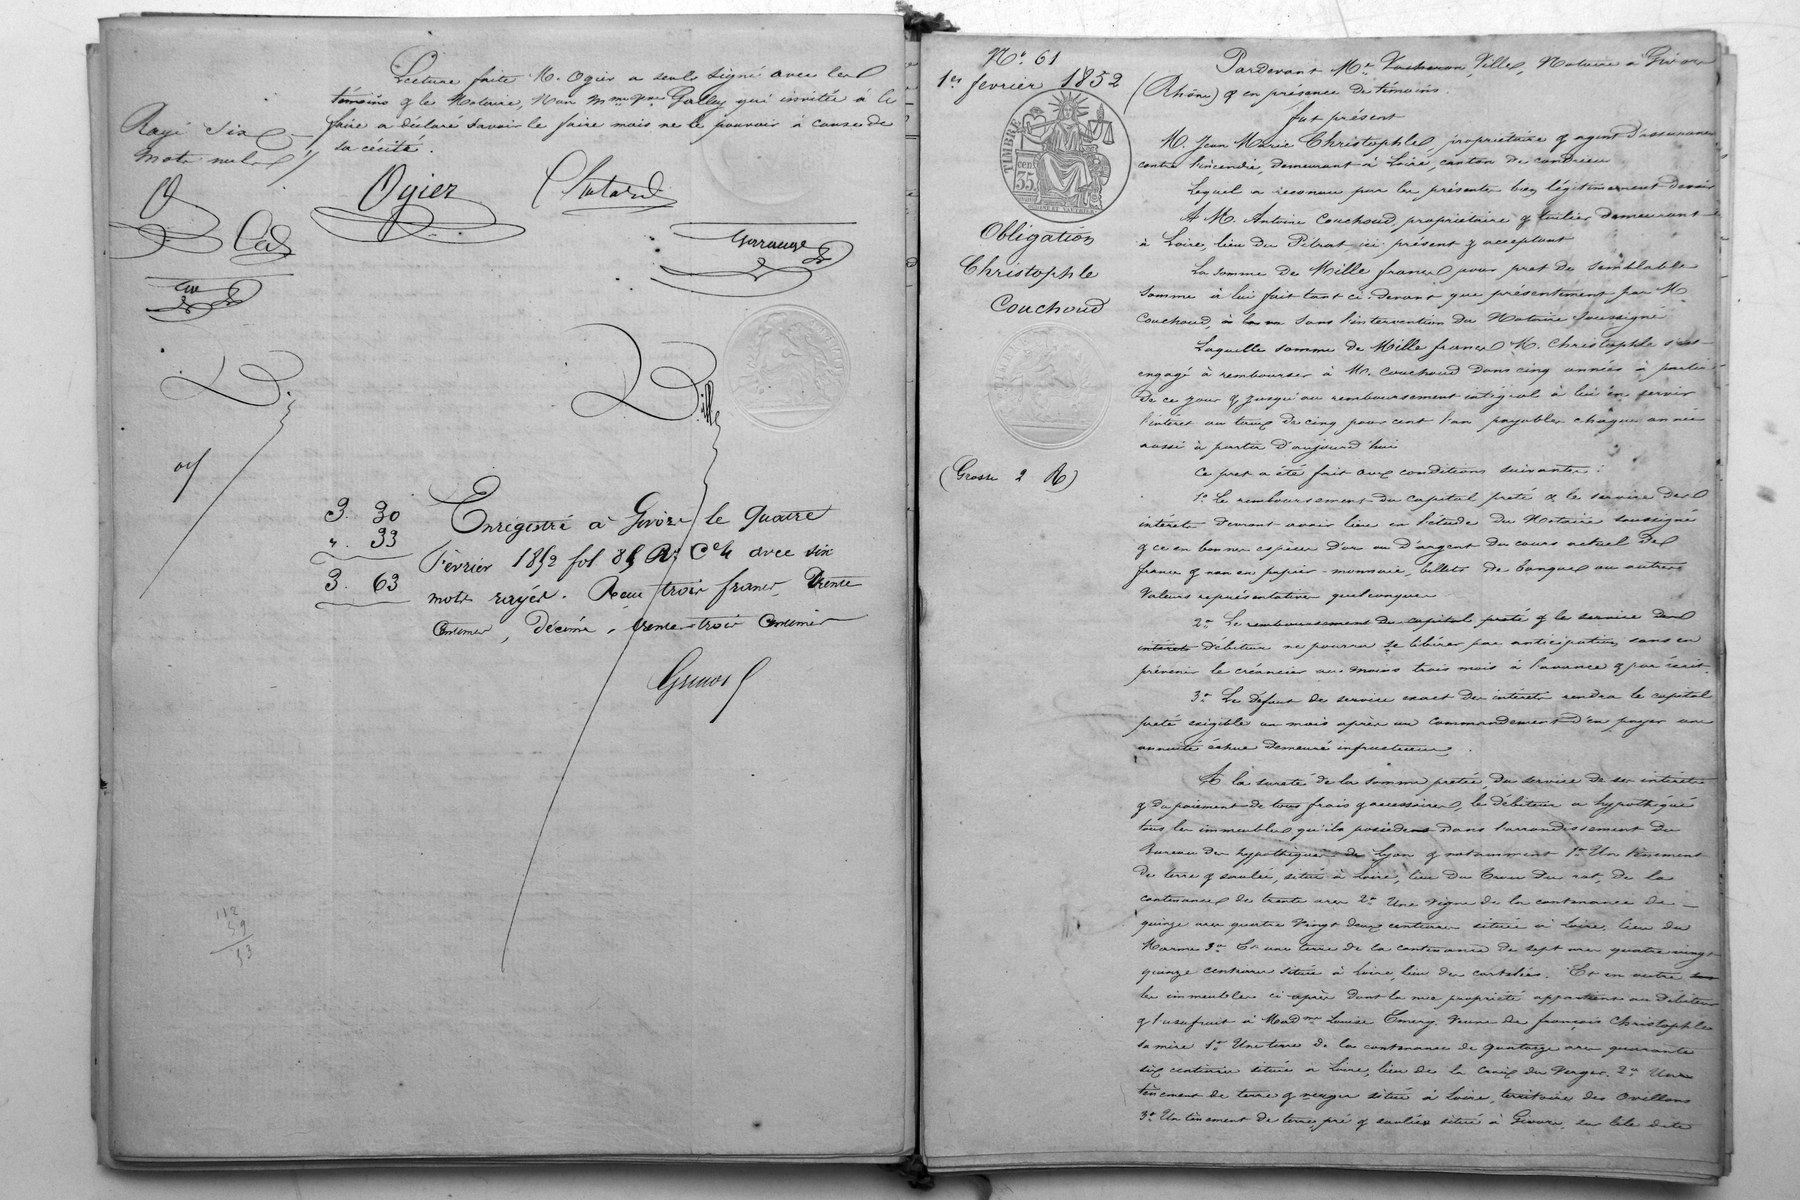 Lecture faite M. Ogier a seul signé avec les
témoins & le Notaire, Non Mme Vve Galley qui invitée à le
faire a déclaré savoir le faire mais ne le pouvoir à cause de
sa cécité.
Rayé six
mots nuls
Ogier
Chatard
3. 30
". 33
3. 63
Enregistré à Givors le quatre
Février 1852 fol 85 Ro Ce 4 avec six
mots rayés. Reçu trois francs trente
centimes, décime, trente trois centimes
112
59
53
No. 61
1er février 1852
TIMBRE
35
cens
Obligation
Christophle
Couchoud
(Grosse 2 R)
Pardevant Me Vacheron Ville, Notaire à Givors
(Rhône) & en présence de témoins
fut présent
M. Jean Marie Christophle, propriétaire & agent d'assurance
contre l'incendie, demeurant à Loire, canton de Condrieu
Lequel a reconnu par les présentes bien légitimement devoir
A M. Antoine Couchoud, propriétaire & tuilier demeurant
à Loire, lieu du Pilrat ici présent & acceptant
La somme de Mille francs pour pret de semblable
somme à lui fait tant ci-devant que présentement par M.
Couchoud, sans l'intervention du Notaire soussigné
Laquelle somme de Mille francs M. Christophle s'est
engagé à rembourser à M. Couchoud dans cinq années à partir
de ce jour & jusqu'au remboursement intégral à lui en servir
l'intérêt au taux de cinq pour cent l'an payable chaque année
aussi à partir d'aujourd'hui
Ce pret a été fait aux conditions suivantes:
1o Le remboursement du capital preté & le service des
intérêts devront avoir lieu en l'étude du Notaire soussigné
& ce en bonnes espèces d'or ou d'argent du cours actuel de
france & non en papier-monnaie, billets de banque ou autres
valeurs représentatives quelconques
2o Le remboursement du capital preté & le service des
intérets débiteur ne pourra se libérer par anticipation sans en
prévenir le créancier au moins trois mois à l'avance & par écrit.
3o Le défaut de service exact des intérets rendra le capital
preté exigible un mois après un commandement d'en payer une
annuité échue demeuré infructueux.
A la sureté de la somme pretée, du service de ses intérêts
& du paiement de tous frais & accessoires, le débiteur a hypothéqué
tous les immeubles qu'il possède dans l'arrondissement du
Bureau des hypothèques de Lyon & notamment 1o Un tènement
de terre & saulée, situé à Loire, lieu du Creux du rat, de la
contenance de trente ares 2o Une vigne de la contenance de
quinze ares quatre vingt deux centiares située à Loire, lieu du
Marme 3o Et une terre de la contenance de sept ares quatre vingt
quinze centiares située à Loire, lieu des cartelées. Et en outre
les immeubles ci-après dont la nue propriété appartient au débiteur
& l'usufruit à Madme Louise Emery veuve de françois Christophle
sa mère 1o Une terre de la contenance de quatorze ares quarante
six centiares située à Loire, lieu de la Croix du Verger. 2o Un
tènement de terre & verger situé à Loire, territoire des Ovillons
3o Un tènement de terre, pré & saulées situé à Givors, en l'ile dite